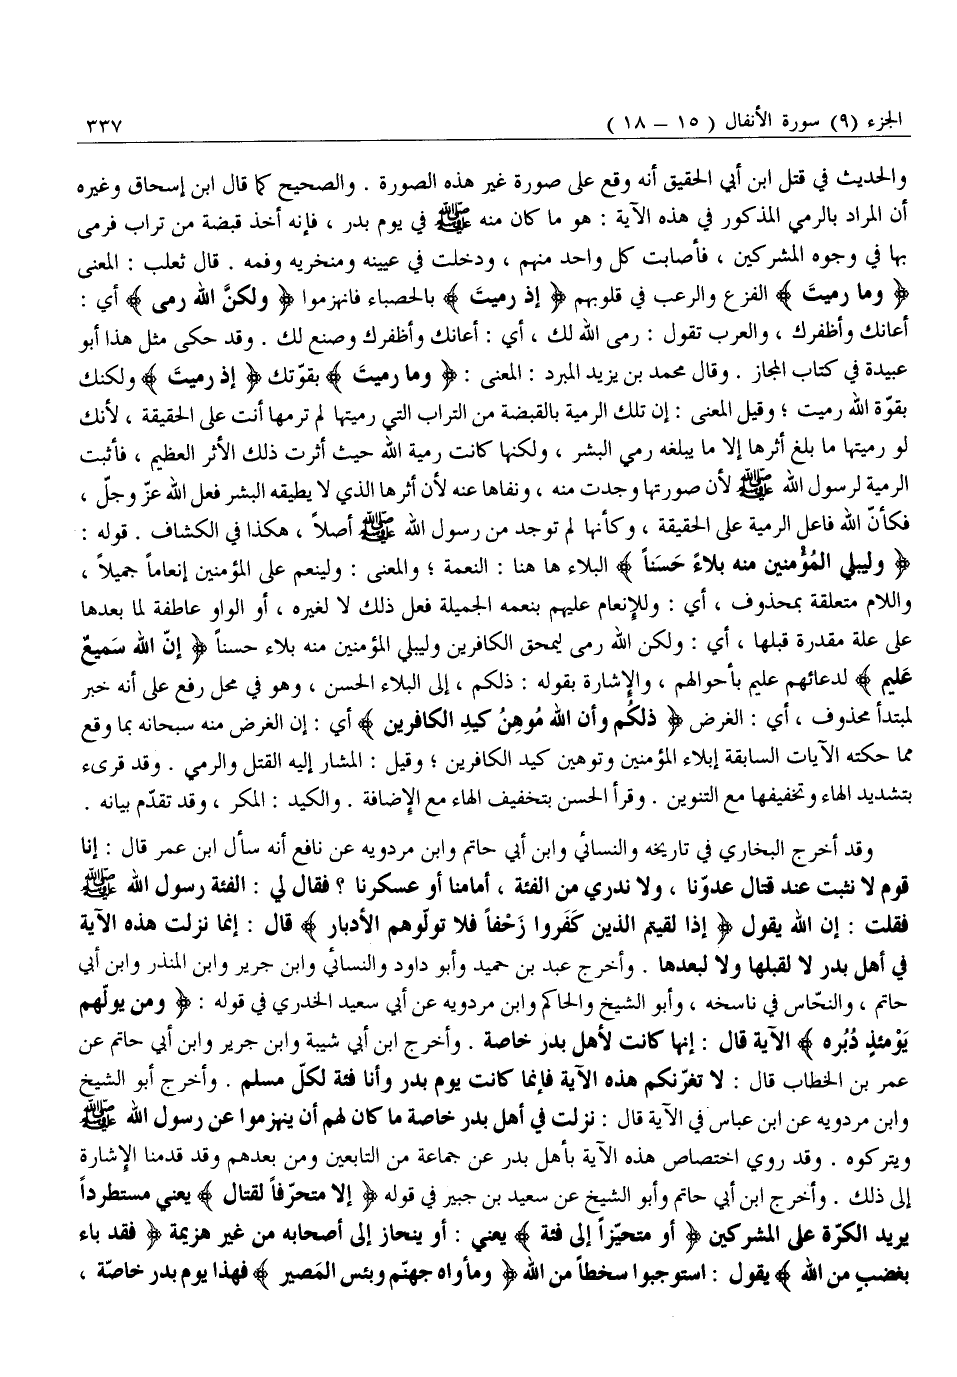 الجزء (٩) سورة الأنفال ( ١٥ – ١٨ ) ٣٣٧
والحديث في قتل ابن أبي الحقيق أنه وقع على صورة غير هذه الصورة . والصحيح كما قال ابن إسحاق وغيره
أن المراد بالرمي المذكور في هذه الآية : هو ما كان منه ﷺ في يوم بدر ، فإنه أخذ قبضة من تراب فرمى
بها في وجوه المشركين ، فأصابت كل واحد منهم ، ودخلت في عينيه ومنخريه وفمه . قال ثعلب : المعنى
﴿ وما رميتَ ﴾ الفزع والرعب في قلوبهم ﴿ إذ رميتَ ﴾ بالحصباء فانهزموا ﴿ ولكنَّ الله رمى ﴾ أي :
أعانك وأظفرك ، والعرب تقول : رمى الله لك ، أي : أعانك وأظفرك وصنع لك . وقد حكى مثل هذا أبو
عبيدة في كتاب المجاز . وقال محمد بن يزيد المبرد : المعنى : ﴿ وما رميتَ ﴾ بقوّتك ﴿ إذ رميتَ ﴾ ولكنك
بقوّة الله رميت ؛ وقيل المعنى : إن تلك الرمية بالقبضة من التراب التي رميتها لم ترمها أنت على الحقيقة ، لأنك
لو رميتها ما بلغ أثرها إلا ما يبلغه رمي البشر ، ولكنها كانت رمية الله حيث أثرت ذلك الأثر العظيم ، فأثبت
الرمية لرسول الله ﷺ لأن صورتها وجدت منه ، ونفاها عنه لأن أثرها الذي لا يطيقه البشر فعل الله عزّ وجلّ ،
فكأنّ الله فاعل الرمية على الحقيقة ، وكأنها لم توجد من رسول الله ﷺ أصلاً ، هكذا في الكشاف . قوله :
﴿ وليبلي المُؤْمنين منه بلاءً حَسَناً ﴾ البلاء ها هنا : النعمة ؛ والمعنى : ولينعم على المؤمنين إنعاماً جميلاً ،
واللام متعلقة بمحذوف ، أي : وللإنعام عليهم بنعمه الجميلة فعل ذلك لا لغيره ، أو الواو عاطفة لما بعدها
على علة مقدرة قبلها ، أي : ولكن الله رمى ليمحق الكافرين وليبلي المؤمنين منه بلاء حسناً ﴿ إنّ الله سَميعٌ
عَليم ﴾ لدعائهم عليم بأحوالهم ، والإشارة بقوله : ذلكم ، إلى البلاء الحسن ، وهو في محل رفع على أنه خبر
لمبتدأ محذوف ، أي : الغرض ﴿ ذلكُم وأن الله مُوهِنُ كيدِ الكافرين ﴾ أي : إن الغرض منه سبحانه بما وقع
مما حكته الآيات السابقة إبلاء المؤمنين وتوهين كيد الكافرين ؛ وقيل : المشار إليه القتل والرمي . وقد قرىء
بتشديد الهاء وتخفيفها مع التنوين . وقرأ الحسن بتخفيف الهاء مع الإضافة . والكيد : المكر ، وقد تقدّم بيانه .
وقد أخرج البخاري في تاريخه والنسائي وابن أبي حاتم وابن مردويه عن نافع أنه سأل ابن عمر قال : إنا
قوم لا نثبت عند قتال عدوّنا ، ولا ندري من الفئة ، أمامنا أو عسكرنا ؟ فقال لي : الفئة رسول الله ﷺ
فقلت : إن الله يقول ﴿ إذا لقيتم الذين كَفَروا زَحْفاً فلا تولّوهم الأدبار ﴾ قال : إنما نزلت هذه الآية
في أهل بدر لا لقبلها ولا لبعدها . وأخرج عبد بن حميد وأبو داود والنسائي وابن جرير وابن المنذر وابن أبي
حاتم ، والنحّاس في ناسخه ، وأبو الشيخ والحاكم وابن مردويه عن أبي سعيد الخدري في قوله : ﴿ ومن يولّهم
يَوْمئذٍ دُبُره ﴾ الآية قال : إنها كانت لأهل بدر خاصة . وأخرج ابن أبي شيبة وابن جرير وابن أبي حاتم عن
عمر بن الخطاب قال : لا تغرّنكم هذه الآية فإنما كانت يوم بدر وأنا فئة لكلّ مسلم . وأخرج أبو الشيخ
وابن مردويه عن ابن عباس في الآية قال : نزلت في أهل بدر خاصة ما كان لهم أن ينهزموا عن رسول الله ﷺ
ويتركوه . وقد روي اختصاص هذه الآية بأهل بدر عن جماعة من التابعين ومن بعدهم وقد قدمنا الإشارة
إلى ذلك . وأخرج ابن أبي حاتم وأبو الشيخ عن سعيد بن جبير في قوله ﴿ إلا متحرّفاً لقتال ﴾ يعني مستطرداً
يريد الكرّة على المشركين ﴿ أو متحيّزاً إلى فئة ﴾ يعني : أو ينحاز إلى أصحابه من غير هزيمة ﴿ فقد باء
بغضبٍ من الله ﴾ يقول : استوجبوا سخطاً من الله ﴿ ومأواه جهنّم وبئس المَصير ﴾ فهذا يوم بدر خاصّة ،